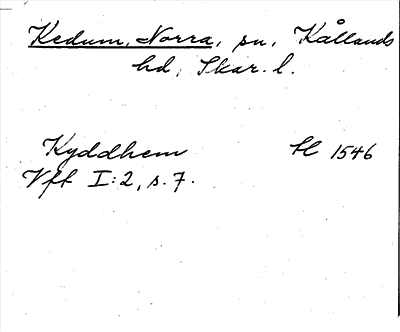 Kedum, Norra, sn, Kållands
hd, Skar. l.
Kyddhem H 1546
Vff I:2, s. 7.